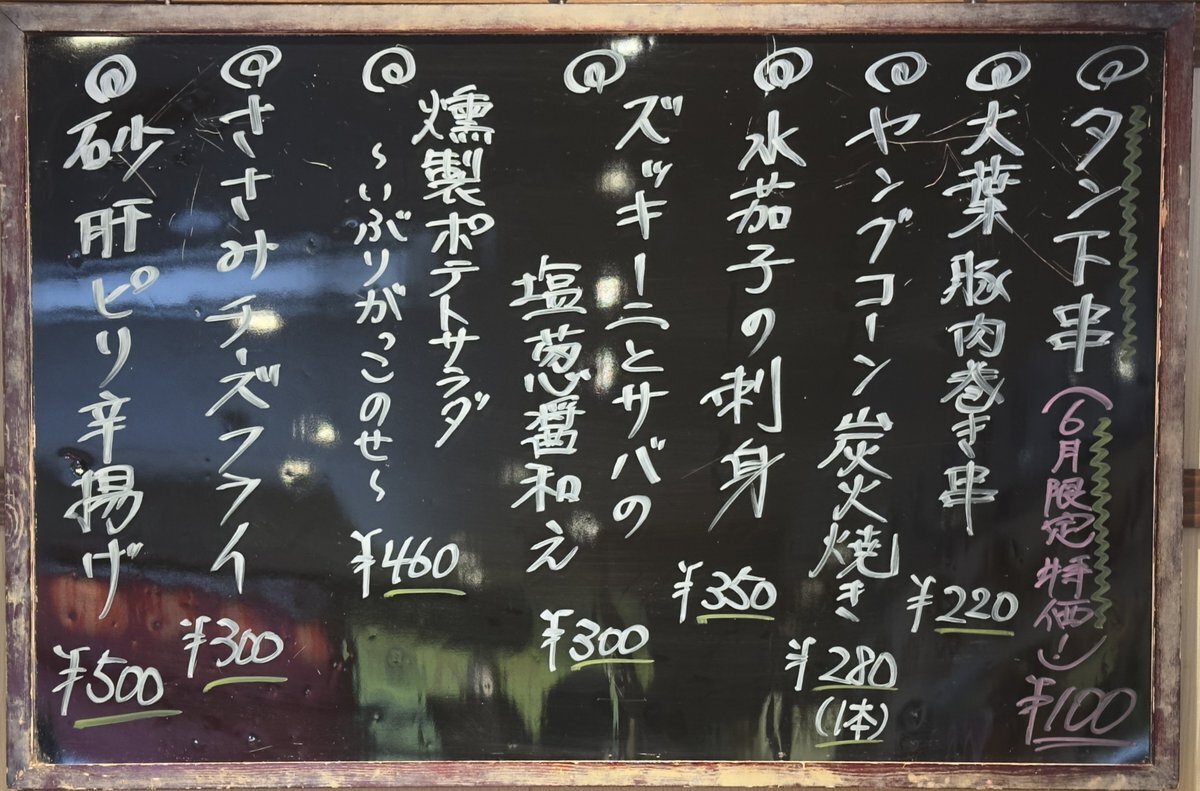 タン下串(6月限定特価!)¥100
大葉豚肉巻き串 ¥220
ヤングコーン炭火焼き ¥280
(1本)
水茄子の刺身 ¥350
ズッキーニとサバの
塩葱醤和え ¥300
燻製ポテトサラダ
~いぶりがっこのせ~ ¥460
ささみチーズフライ ¥300
砂肝ピリ辛揚げ ¥500